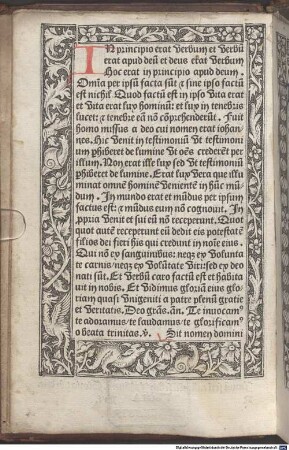 IN principio erat verbum et verbū
erat apud deū et deus erat verbum
Hoc erat in principio apud deum.
Om̄ia per ipsū facta sūt ⁊ sine ipso factū
est nichil. Quod factū est in ipso vita erat
et vita erat lux hominū: et lux in tenebris
lucet: ⁊ tenebre eā nō cōprehenderūt. Fuit
homo missus a deo cui nomen erat iohan-
nes. Hic venit in testimoniū vt testimoni
um phiberet de lumine vt oēs crederēt per
illum. Non erat ille lux sed vt testimoniū
phiberet de lumine. Erat lux vera que illu
minat omnē hominē venientē in hūc mū-
dum. In mundo erat et mūdus per ipsum
factus est: ⁊ mūdus eum nō cognouit. In
ppria venit et sui eū nō receperunt. Quot
quot autē receperunt eū dedit eis potestatē
filios dei fieri his qui credunt in noīe eius.
Qui nō ex sanguinibus: neqꝫ ex volunta
te carnis: neqꝫ ex volūtate viri: sed ex deo
nati sūt. Et verbū caro factū est et habita
uit in nobis. Et vidimus gloriā eius glo-
riam quasi vnigeniti a patre plenū gratie
et veritatis. Deo grās. añ. Te inuocam⁹
te adoramus: te laudamus: te glorificam⁹
o beata trinitas. v̄. Sit nomen domini